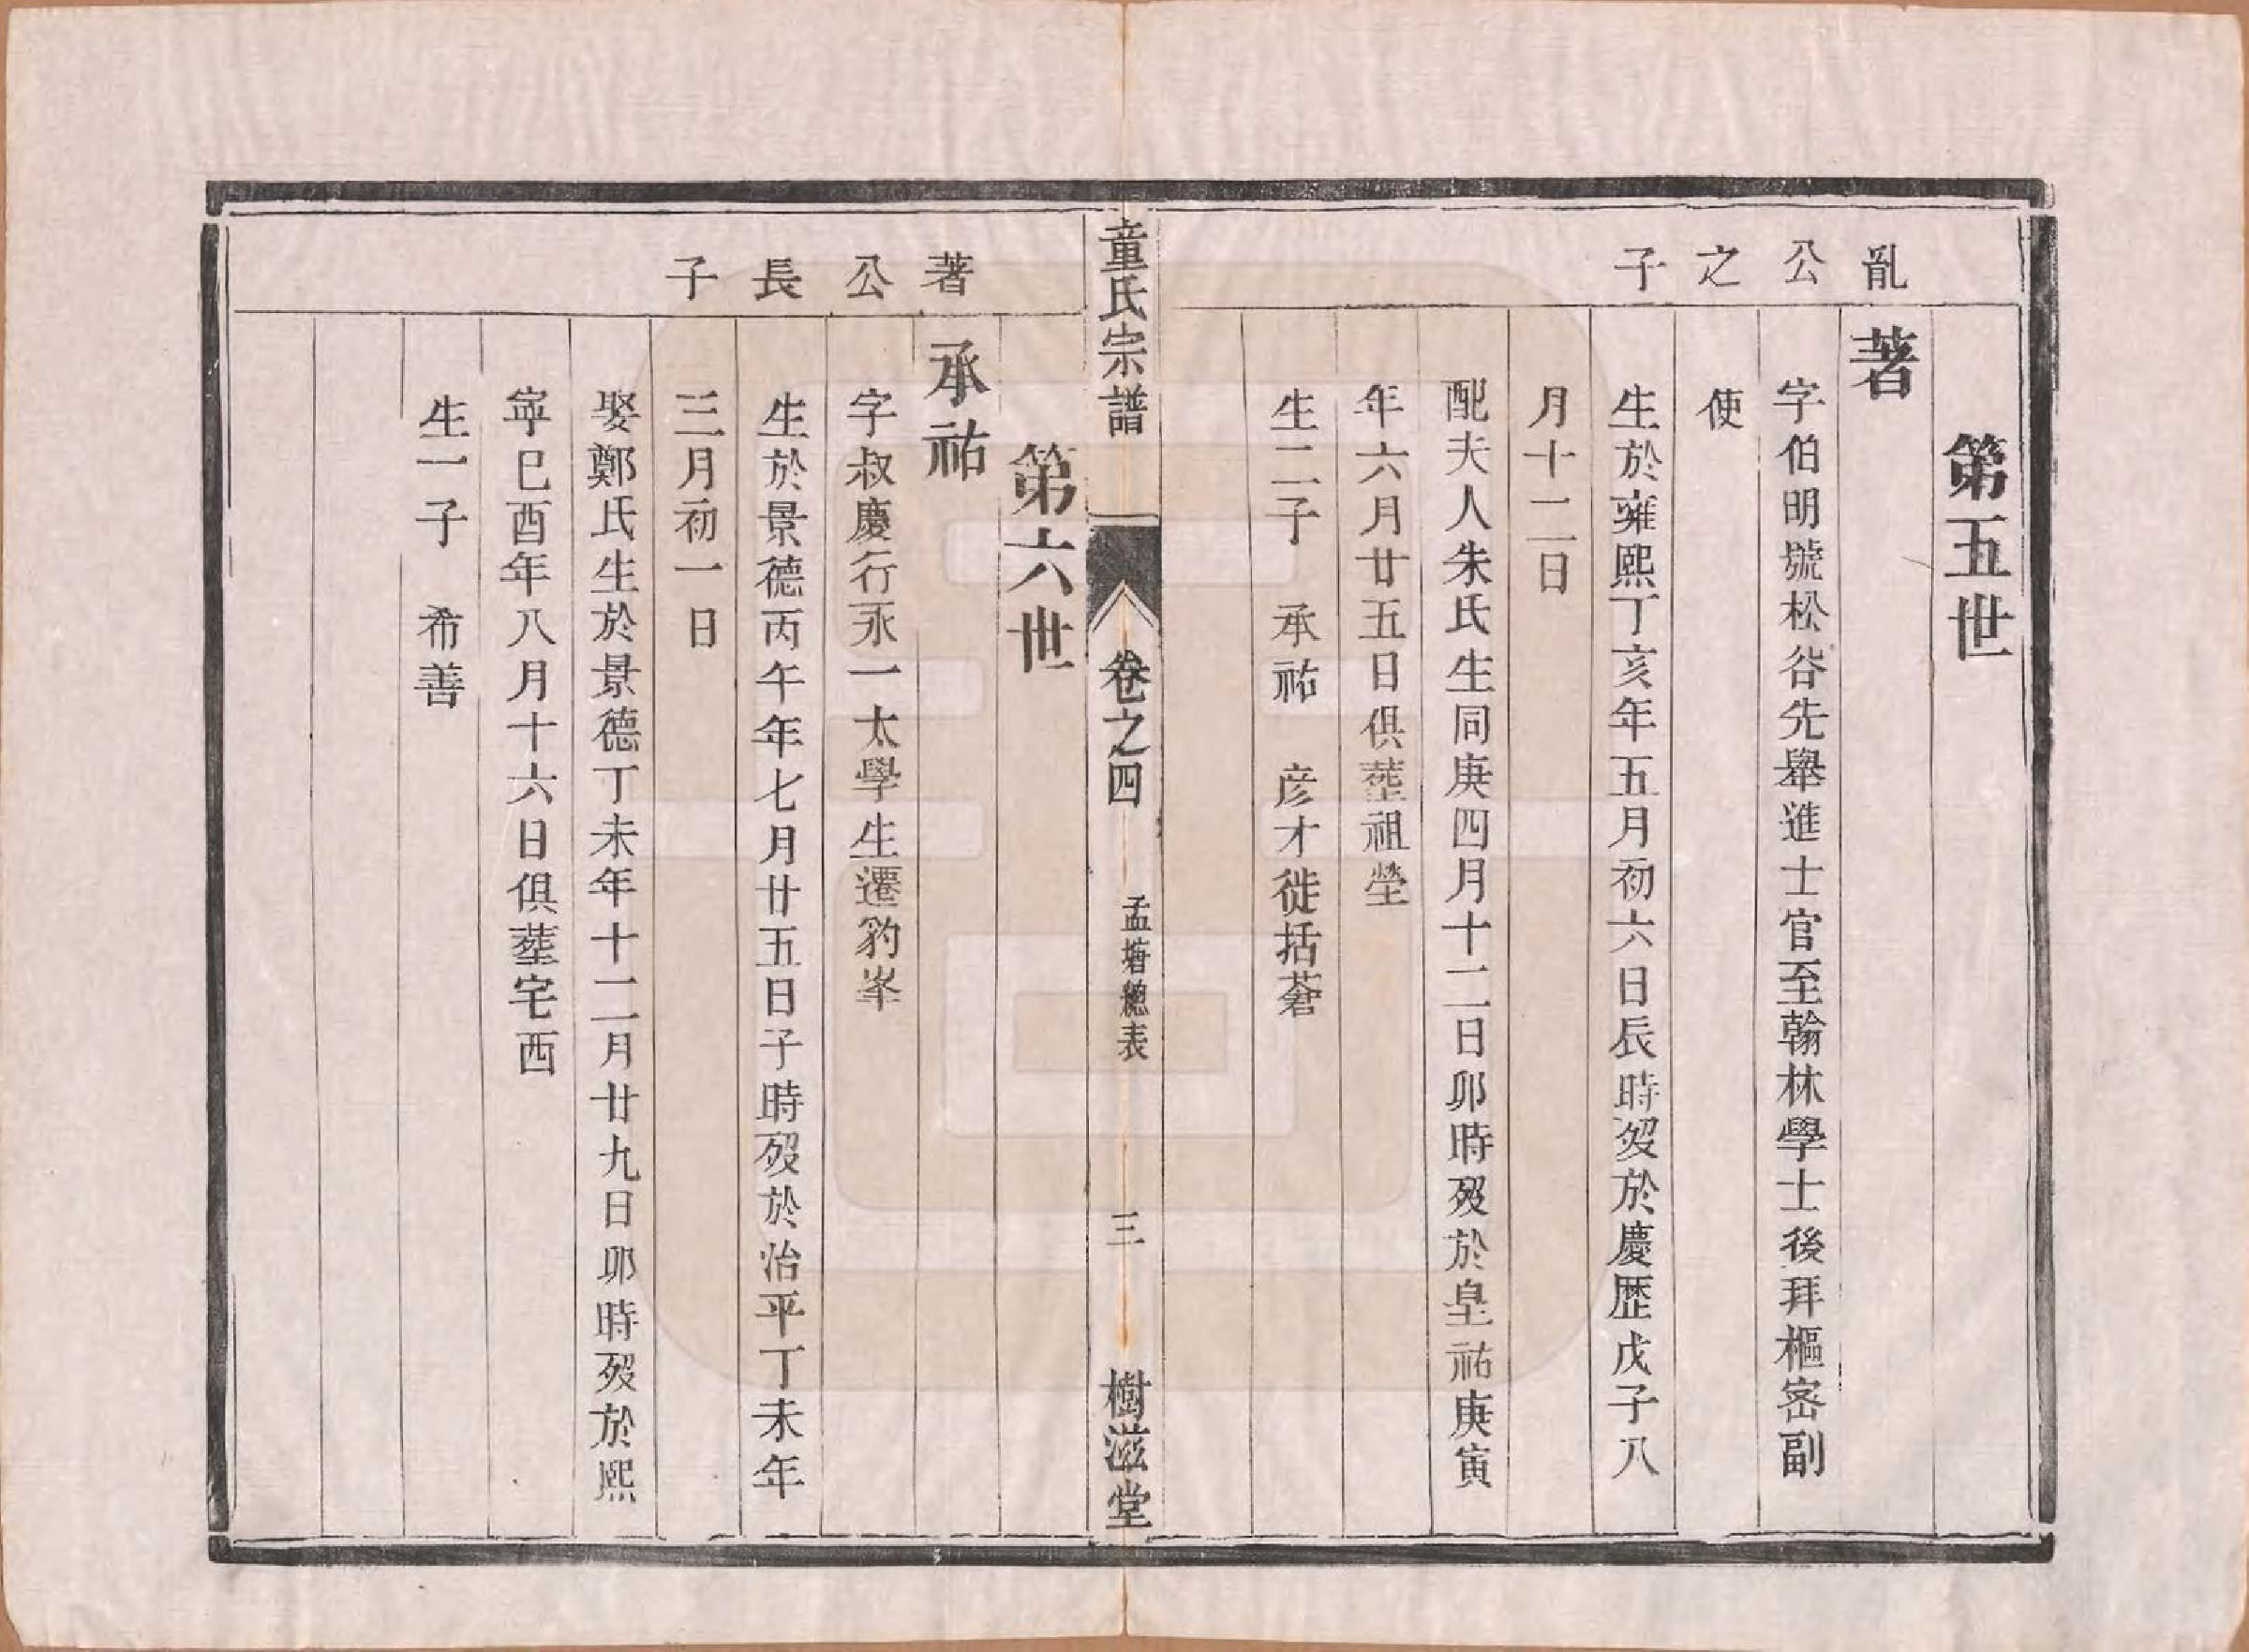 第五世
亂公之子
著
字伯明號松谷先舉進士官至翰林學士後拜樞密副
使
生於雍熙丁亥年五月初六日辰時歿於慶歷戊子八
月十二日
配夫人朱氏生同庚四月十二日卯時歿於皇祐庚寅
年六月廿五日俱塟祖塋
生二子 承祐 彦才徙括蒼
童氏宗譜 卷之四 孟塘總表 三 樹滋堂
第六世
著公長子
承祐
字叔慶行永一太學生遷豹峯
生於景德丙午年七月廿五日子時歿於治平丁未年
三月初一日
娶鄭氏生於景德丁未年十二月廿九日卯時歿於熙
寧巳酉年八月十六日俱塟宅西
生一子 希善